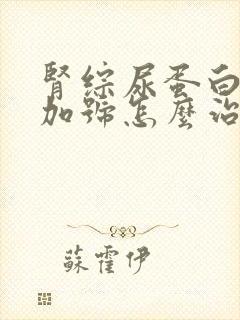 腎綜尿蛋白
加號怎麼治
蘇霍伊